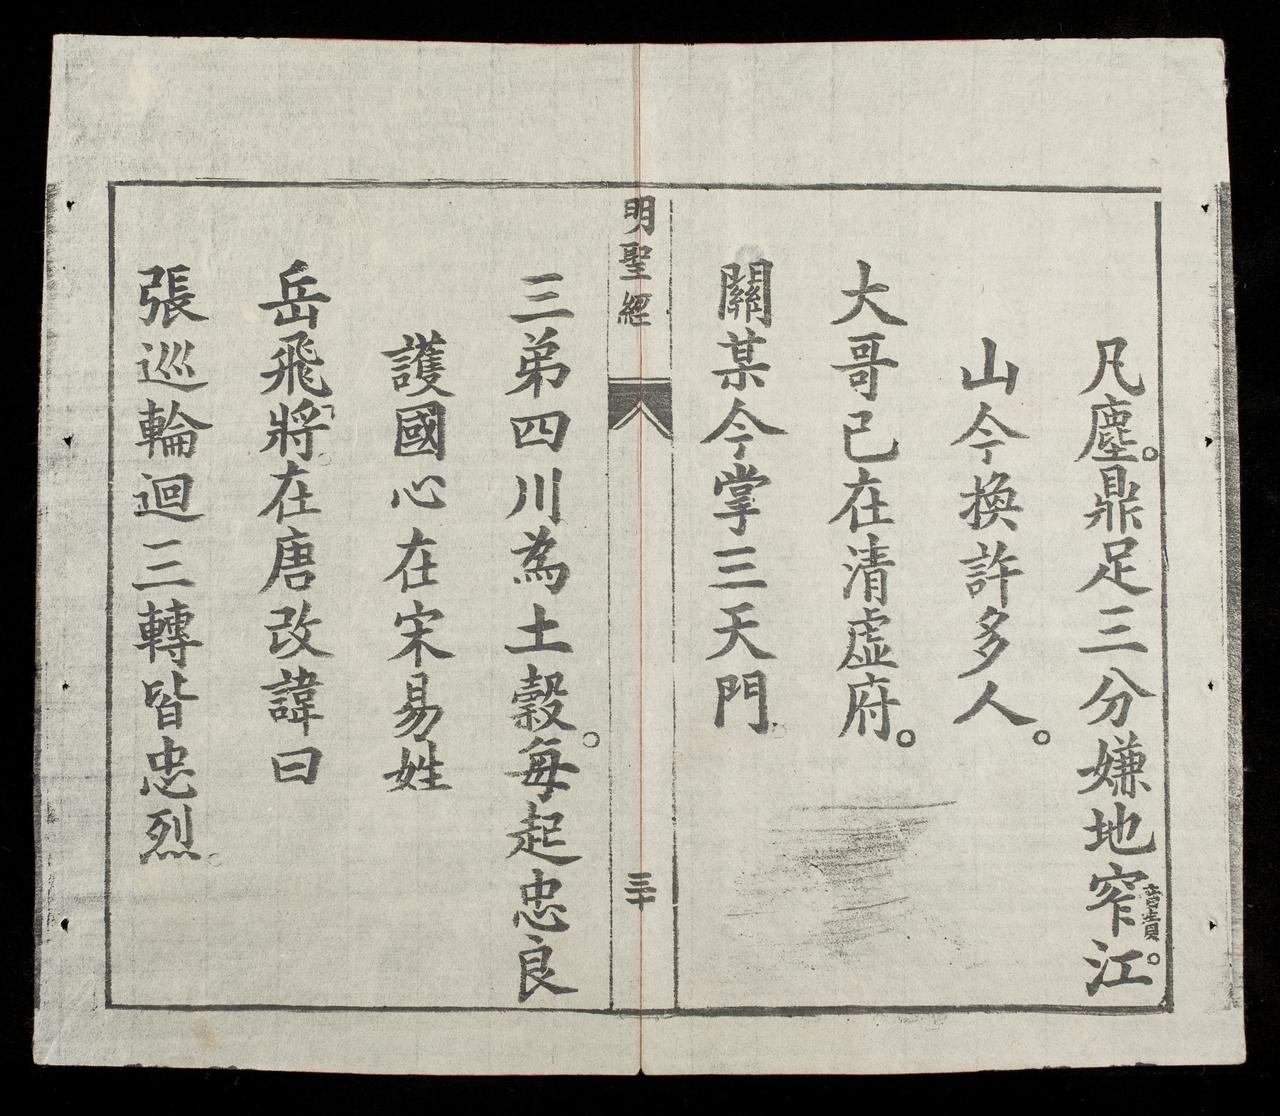 凡塵。鼎足三分嫌地窄音責。江
山今換許多人。
大哥已在清虛府。
關某今掌三天門。
明聖經
三十
三弟四川為土穀。每起忠良
護國心在宋易姓
岳飛將。在唐改諱曰
張巡輪迴三轉皆忠烈。